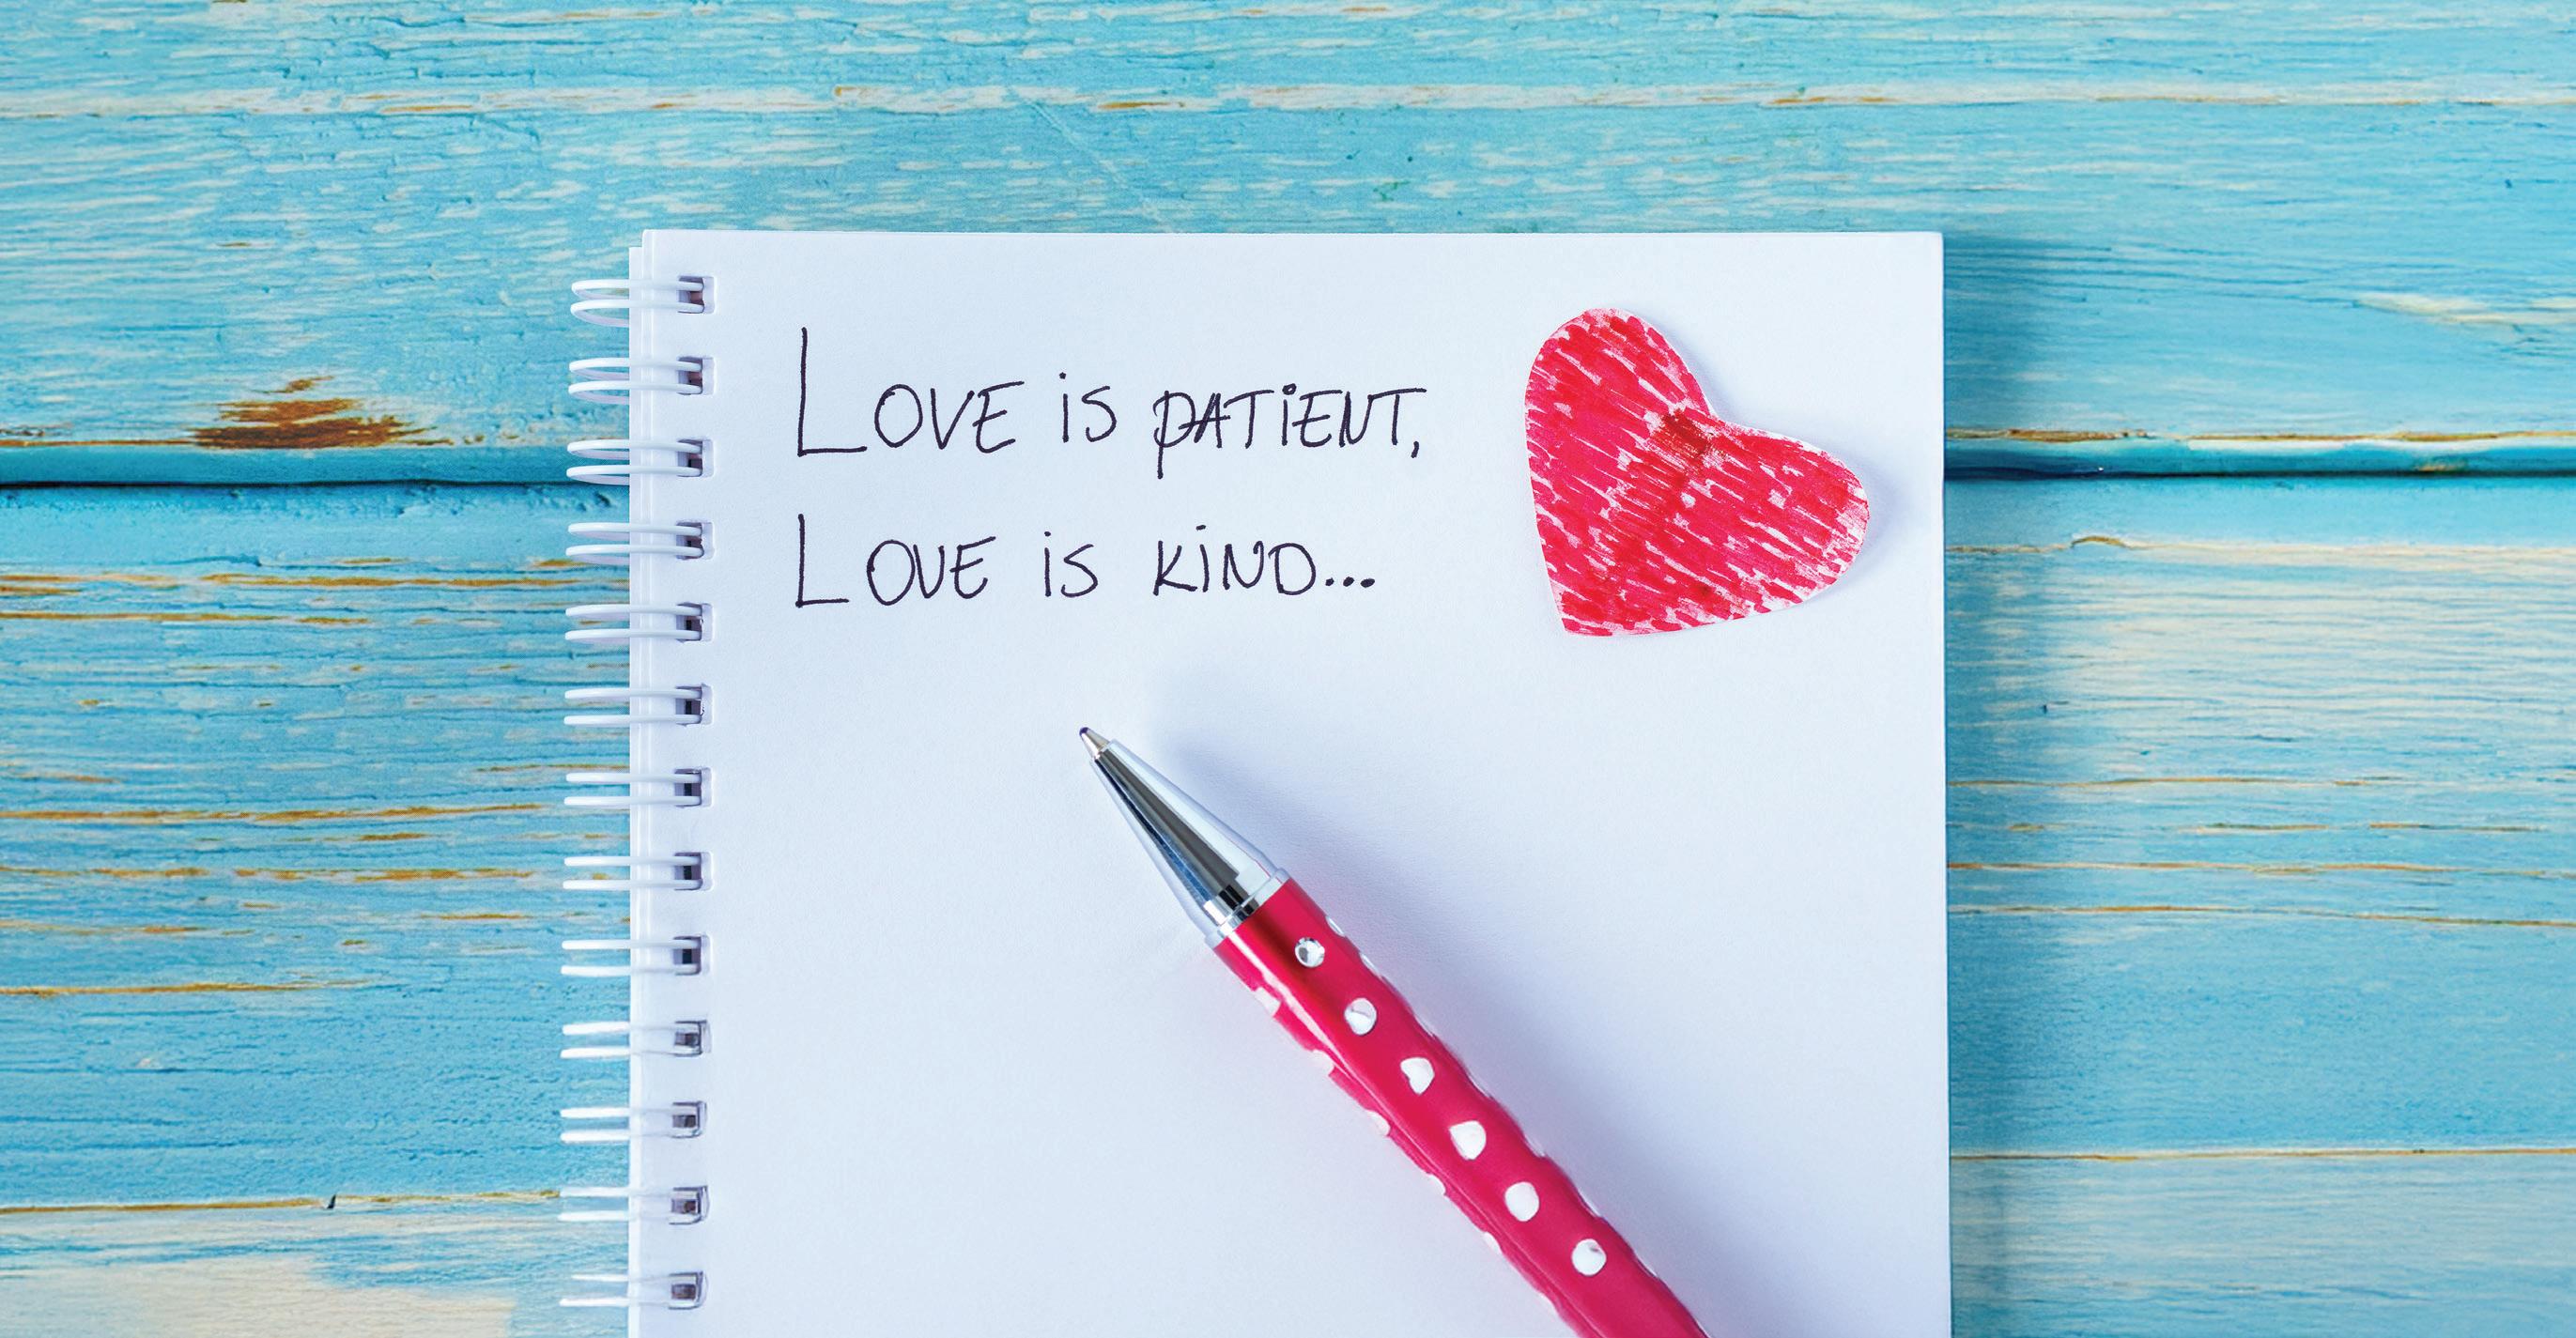 Love is patient,
Love is kind...